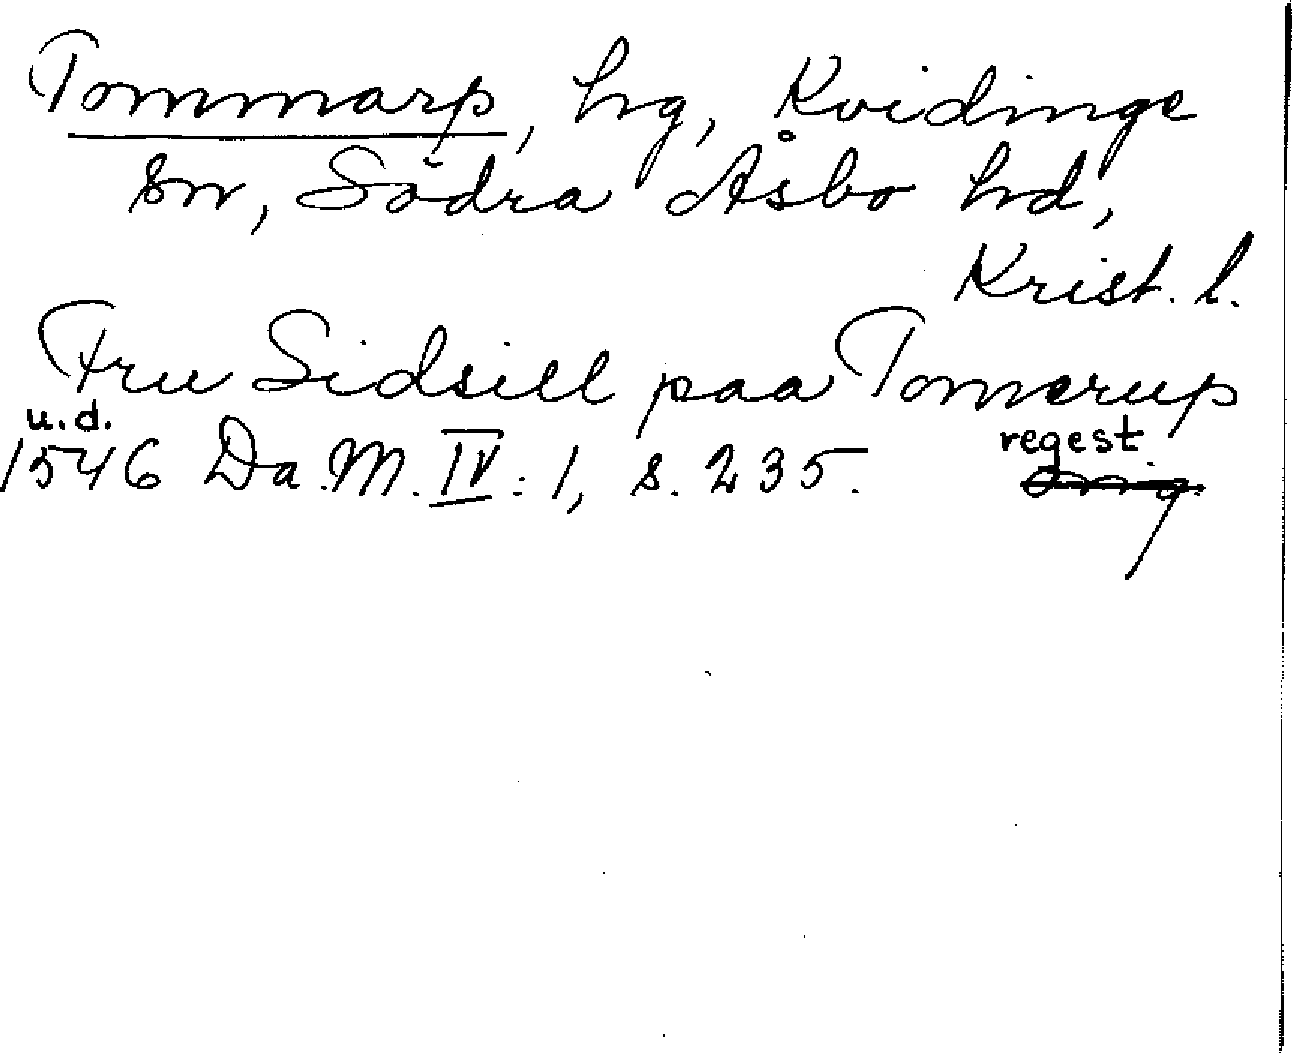 Tommarp, hg, Kvidinge
sn, Södra Åsbo hd,
Krist. l.
Fru Sidsill paa Tomerup
u.d.
1546 Da.M. IV: 1, s. 235. regest
orig.